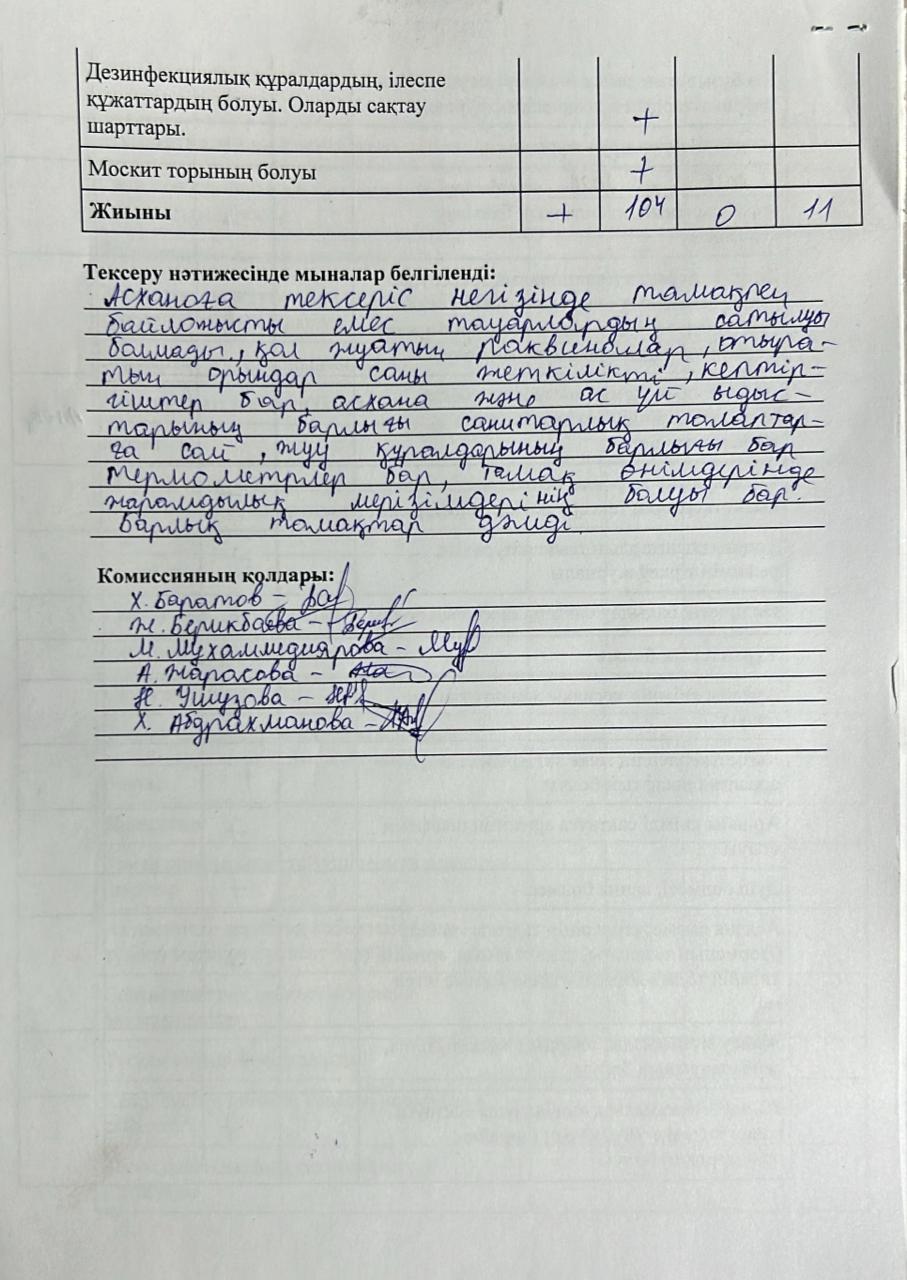 Дезинфекциялық құралдардың, ілеспе
құжаттардың болуы. Оларды сақтау
шарттары. +
Москит торының болуы +
Жиыны + 104 0 11
Тексеру нәтижесінде мыналар белгіленді:
Асханаға тексеріс негізінде тамақпен
байланысты емес тауарлардың сатылуы
болмады, қол жуатын раквиналар, отыра-
тын орындар саны жеткілікті, кептір-
гіштер бар, асхана және ас үй ыдыс-
тарының барлығы санитарлық талаптар-
ға сай, жуу құралдарының барлығы бар
термометрлер бар, тамақ өнімдерінде
жарамдылық мерізімдерінің болуы бар.
Барлық тамақтар дәмді.
Комиссияның қолдары:
Х. Баратов -
Ж. Берикбаева -
М. Мухаммедиярова -
А. Жарасова -
Н. Ушузова -
Х. Абдрахманова -